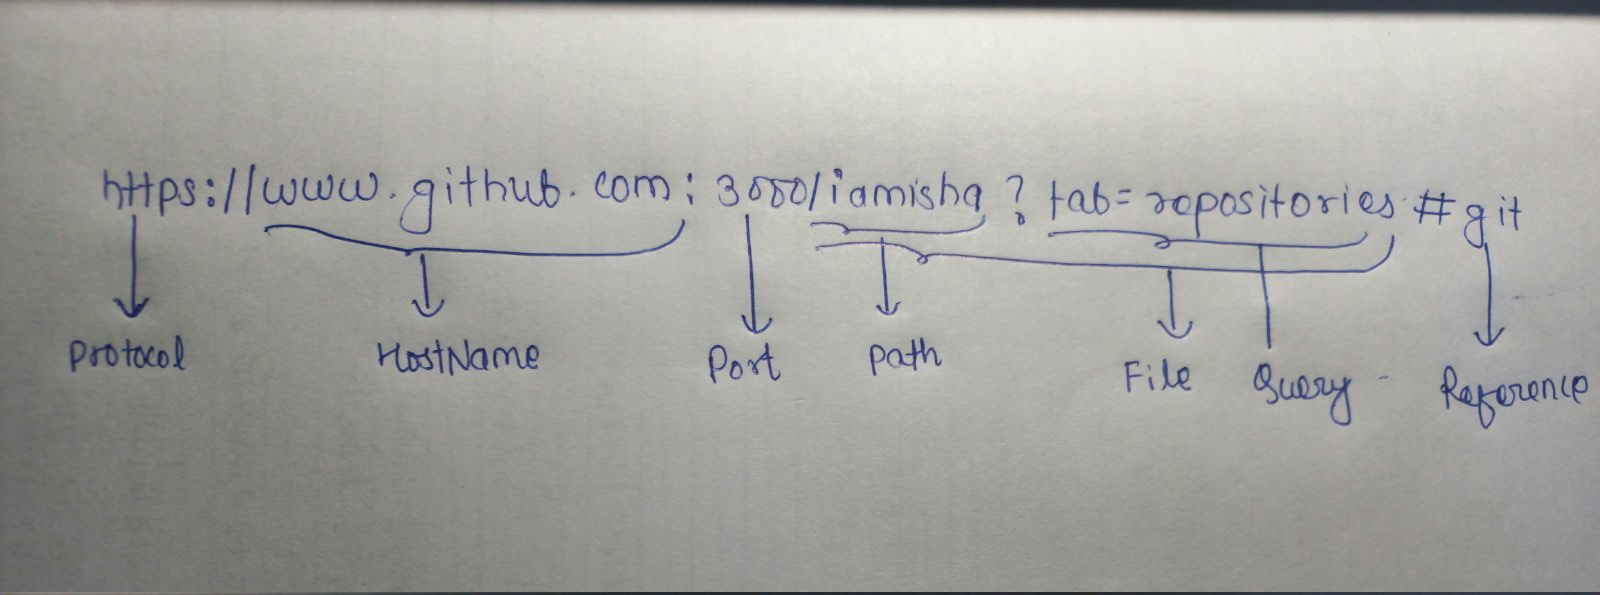 https://www.github.com:3000/iamisha?tab=repositories#git
Protocol HostName Port Path File Query Reference